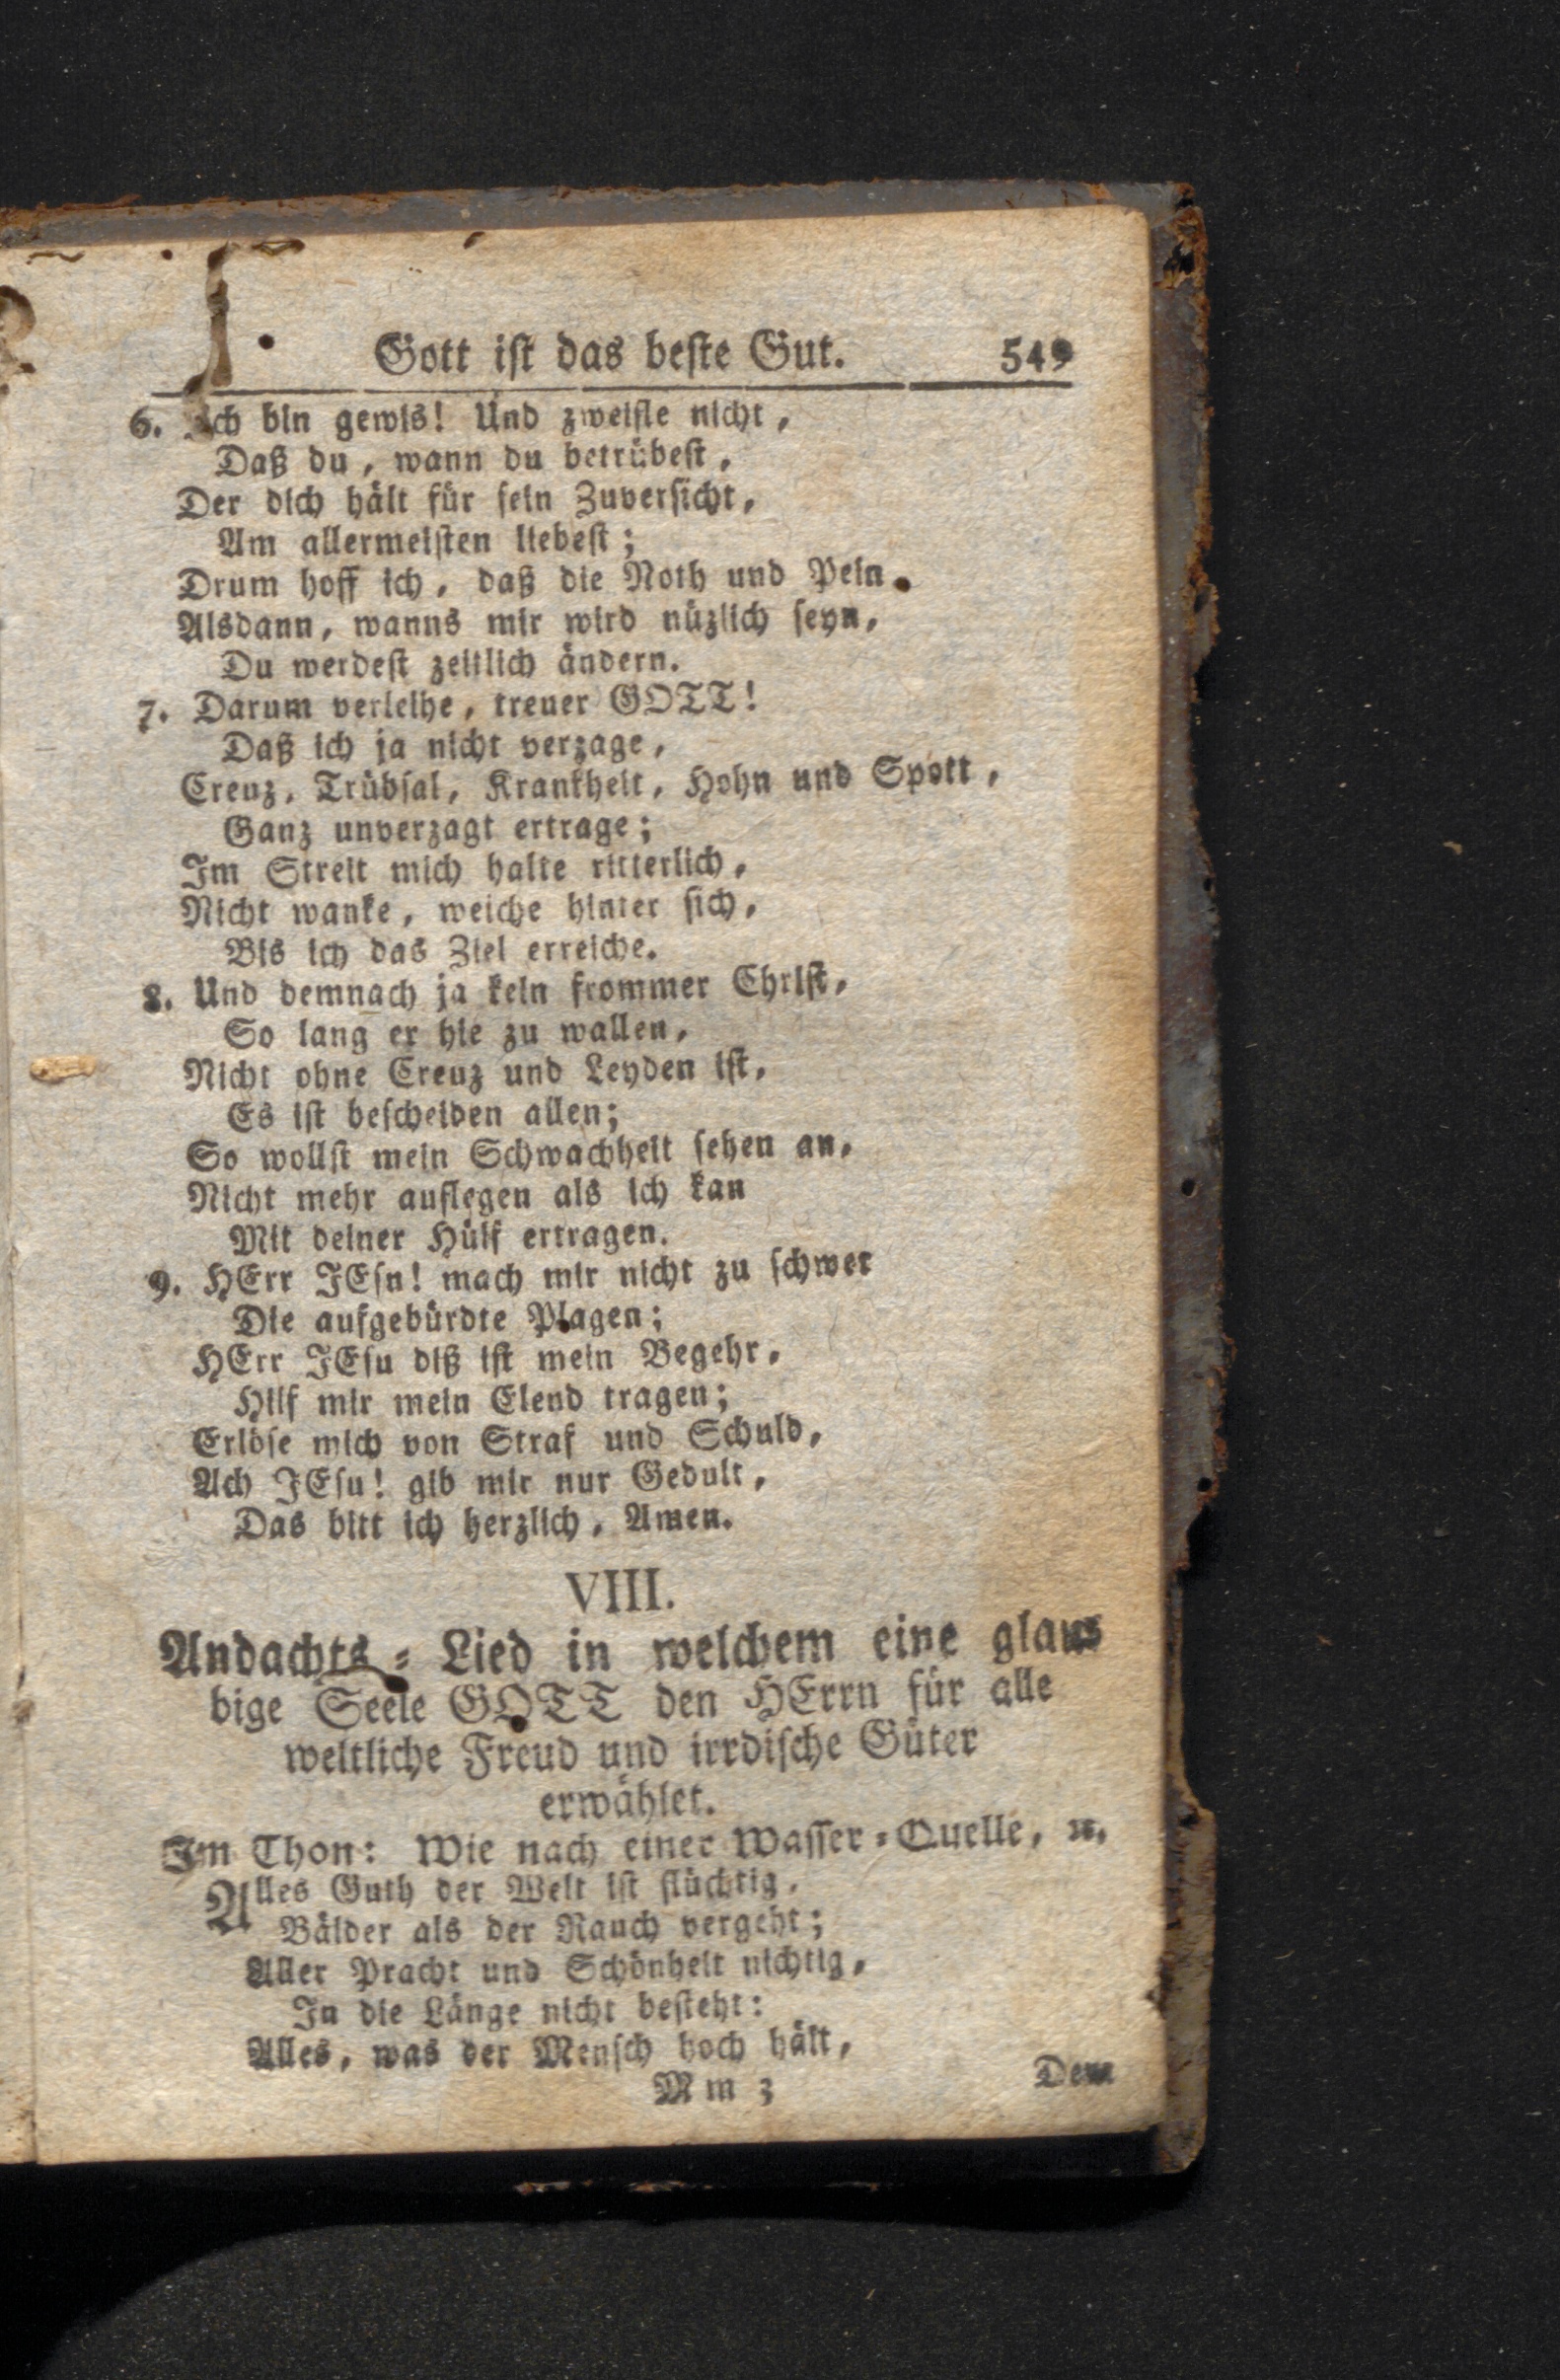 Gott ist das beste Gut. 549
6. Ich bin gewis! Und zweifle nicht,
Daß du, wann du betrübest,
Der dich hält für sein Zuversicht,
Am allermeisten liebest;
Drum hoff ich, daß die Noth und Pein.
Alsdann, wanns mir wird nüzlich seyn,
Du werdest zeitlich ändern.
7. Darum verleihe, treuer GOTT!
Daß ich ja nicht verzage,
Creuz, Trübsal, Krankheit, Hohn und Spott,
Ganz unverzagt ertrage;
Im Streit mich halte ritterlich,
Nicht wanke, weiche hinter sich,
Bis ich das Ziel erreiche.
8. Und demnach ja kein frommer Christ,
So lang er hie zu wallen,
Nicht ohne Creuz und Leyden ist,
Es ist bescheiden allen;
So wollst mein Schwachheit sehen an,
Nicht mehr auflegen als ich kan
Mit deiner Hülf ertragen.
9. HErr JEsu! mach mir nicht zu schwer
Die aufgebürdte Plagen;
HErr JEsu diß ist mein Begehr,
Hilf mir mein Elend tragen;
Erlöse mich von Straf und Schuld,
Ach JEsu! gib mir nur Gedult,
Das bitt ich herzlich, Amen.
VIII.
Andachts-Lied in welchem eine glau-
bige Seele GOTT den HErrn für alle
weltliche Freud und irrdische Güter
erwählet.
Im Thon: Wie nach einer Wasser-Quelle, ꝛc.
Alles Guth der Welt ist flüchtig,
Bälder als der Rauch vergeht;
Aller Pracht und Schönheit nichtig,
In die Länge nicht besteht:
Alles, was der Mensch hoch hält,
M m 3 Dem